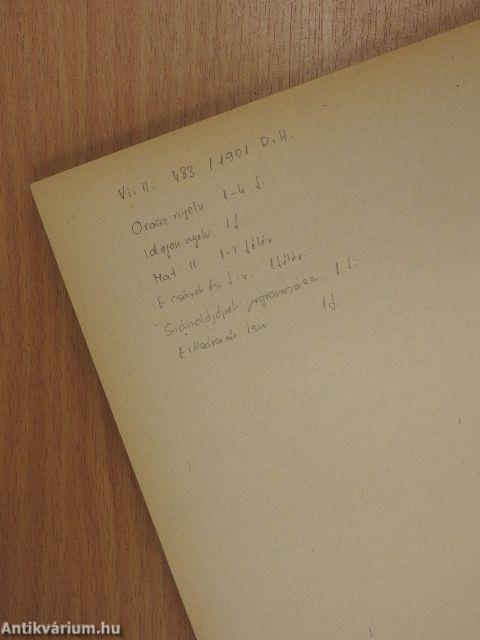 Vi. II. 483 / 1901 D. H.
Orosz nyelv 1-4 f.
Idegen nyelv 1f
Mat II. 1-2 félév.
E csövek és f.v. 1félév.
Számológépek programozása 1 f.
1f.
Antikvárium.hu